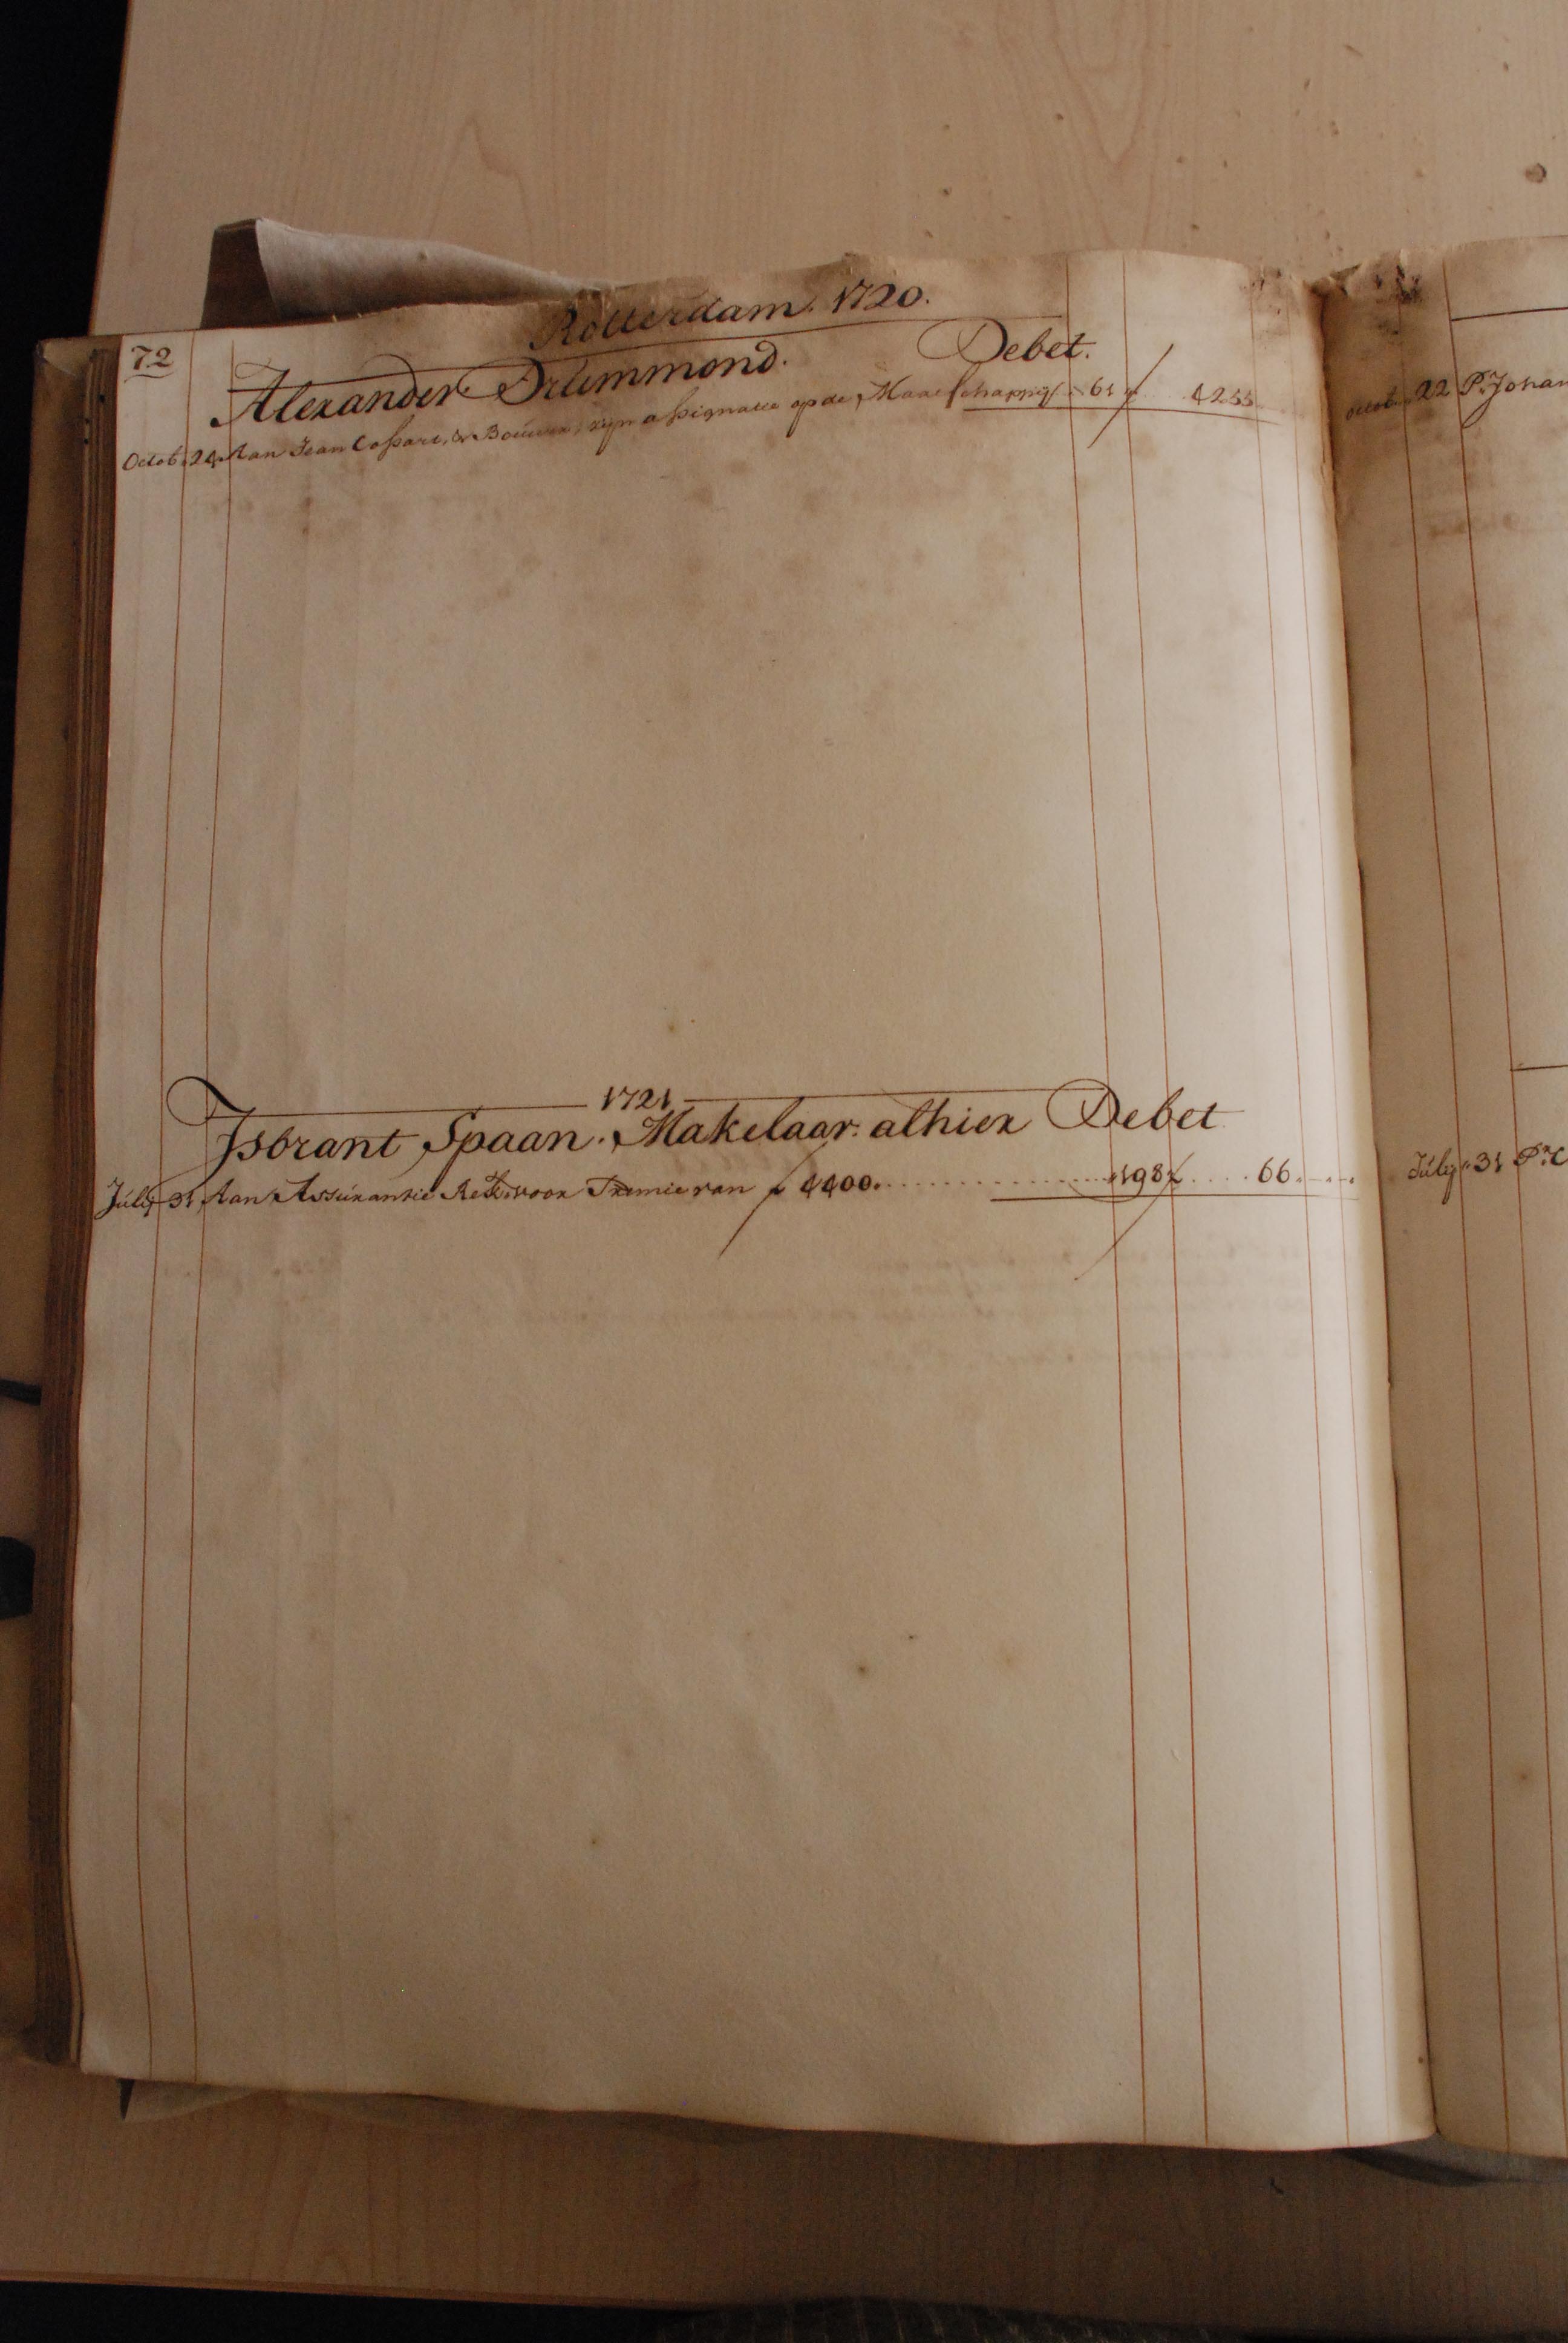 Rotterdam. 1720.
72
Alexander Drummond. Debet.
Octob. 24 Aan Jean Cossart, & Bouwer, zijn assignatie op de Maatschappij 61 f
1721
Isbrant Spaan. Makelaar. alhier Debet
Júlij 31 Aan Assúrantie Rek. voor Premie van f 4400. 198 f 66
Octob. 22 Pr. Johan
Júlij 31 Pr.